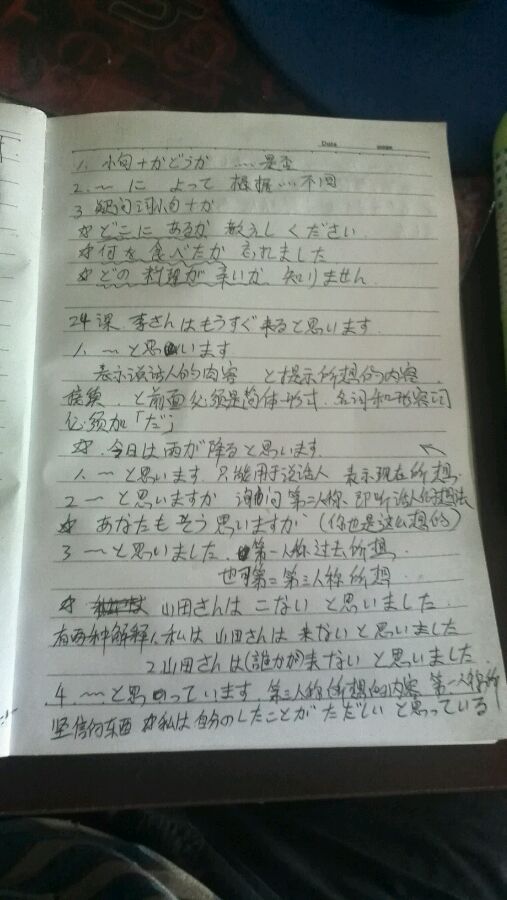 Date
1. 小句+かどうか ……是否
2. ～ に よって 根据…不同
3 疑问词小句+か
☆ どこに あるか 教えしください
☆ 何を食べたか 忘れました
☆ どの料理が辛いか、知りません
24课 李さんはもうすぐ来ると思います
1、～と思います
表示说话人的内容 と提示所想的内容
接续 と前面必须是简体形式. 名词和形容词
必须加「だ」
☆ 今日は雨が降ると思います
1、～と思います 只能用于说话人 表示现在所想
2 ～ と思いますか 询问第二人称 即听话人的想法
☆ あなたもそう思いますか (你也是这么想的)
3 ～と思いました 第一人称过去所想
也可第二第三人称所想
☆ 山田さんは こない と思いました
有两种解释1、私は 山田さんは 来ないと思いました
2山田さんは(誰かが)来ない と思いました
4 ～と思っています 第三人称所想的内容 第一人称所
坚信何东西 ☆私は自分のしたことがただしい と思っている